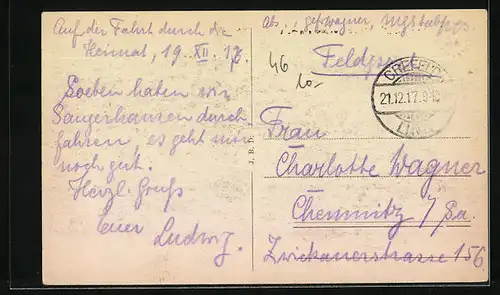 Auf der Fahrt durch die
Heimat, 19 XII. 17.
Soeben haben wir
Sangerhausen durch-
fahren, es geht mir
noch gut.
Herzl. Gruß
Euer Ludwig.
Abs. Wagner,
46
Feldpost
CREFELD
21.12.17.
J. B.
Frau
Charlotte Wagner
Chemnitz / Sa.
Zwickauerstrasse 156